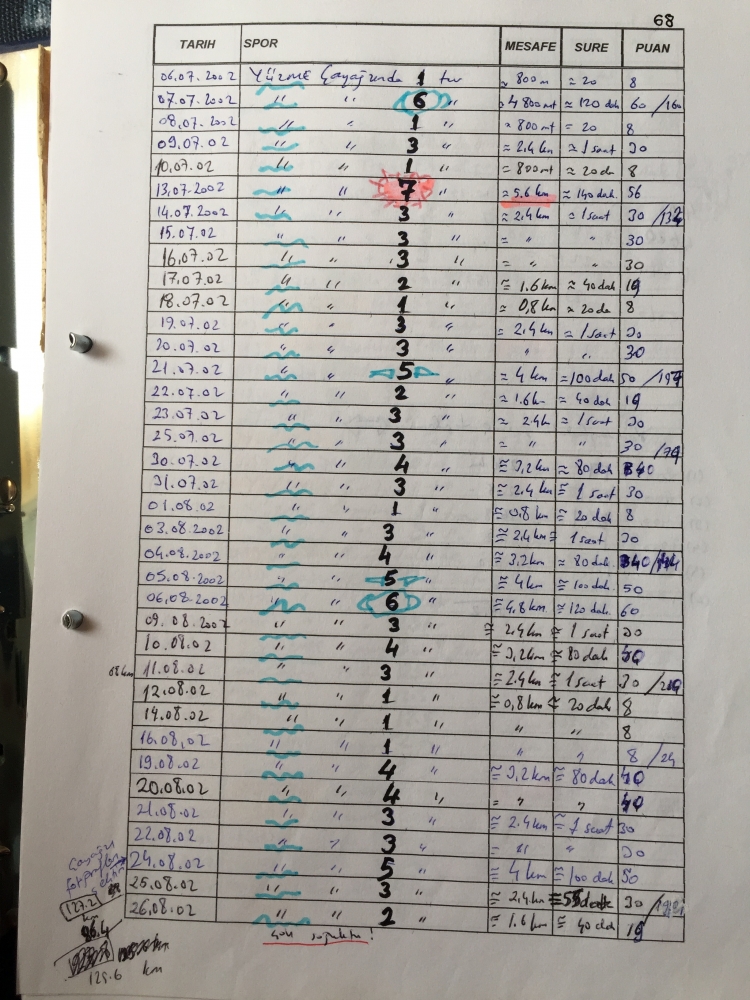 68
TARIH SPOR MESAFE SURE PUAN
06.07.2002 Yüzme Çayağzında 1 tur ≈ 800 m ≈ 20 8
07.07.2002 " " 6 " ≈ 4 800 mt ≈ 120 dak 60 /160
08.07.2002 " " 1 " ≈ 800 mt = 20 8
09.07.02 " " 3 " ≈ 2.4 km ≈ 1 saat 30
10.07.02 " " 1 " = 800 mt ≈ 20 da 8
13.07.2002 " " 7 " ≈ 5.6 km ≈ 140 dak 56
14.07.2002 " " 3 " ≈ 2.4 km ≈ 1 saat 30
15.07.02 " " 3 " = " " 30
16.07.02 " " 3 " = " " 30
17.07.02 " " 2 " ≅ 1.6 km ≈ 40 dak 16
18.07.02 " " 1 " ≈ 0,8 km ≈ 20 da 8
19.07.02 " " 3 " = 2.4 km ≈ 1 saat 30
20.07.02 " " 3 " " " 30
21.07.02 " " 5 " ≈ 4 km =100 dak 50
22.07.02 " " 2 " ≈ 1.6 k ≈ 40 dak 16
23.07.02 " " 3 " ≈ 2.4 k = 1 saat 30
25.07.02 " " 3 " = " " 30
30.07.02 " " 4 " ≅ 3,2 km ≈ 80 dak 40
31.07.02 " " 3 " ≅ 2.4 km ≅ 1 saat 30
01.08.02 " " 1 " ≅ 0.8 km ≅ 20 dak 8
03.08.2002 " " 3 " ≅ 2.4 km = 1 saat 30
04.08.2002 " " 4 " ≅ 3,2 km ≈ 80 dak. 40
05.08.2002 " " 5 " ≅ 4 km ≅ 100 dak. 50
06.08.2002 " " 6 " ≅ 4,8 km. ≅ 120 dak. 60
09.08.2002 " " 3 " ≅ 2.4 km ≅ 1 saat 30
10.08.02 " " 4 " ≅ 3,2 km ≅ 80 dak 40
11.08.02 " " 3 " ≅ 2.4 km ≅ 1 saat 30
12.08.02 " " 1 " ≅ 0,8 km ≅ 20 dak 8
14.08.02 " " 1 " " " 8
16.08.02 " " 1 " " " 8 /24
19.08.02 " " 4 " ≅ 3,2 km ≅ 80 dak 40
20.08.02 " " 4 " = " " 40
21.08.02 " " 3 " ≅ 2.4 km ≅ 1 saat 30
22.08.02 " " 3 " = " " 30
24.08.02 " " 5 " ≅ 4 km ≅ 100 dak 50
25.08.02 " " 3 " ≅ 2,4 km ≅ 55 dak 30
26.08.02 " " 2 " ≅ 1.6 km ≅ 40 dak 16
127.2
km
86.4
129.6 km